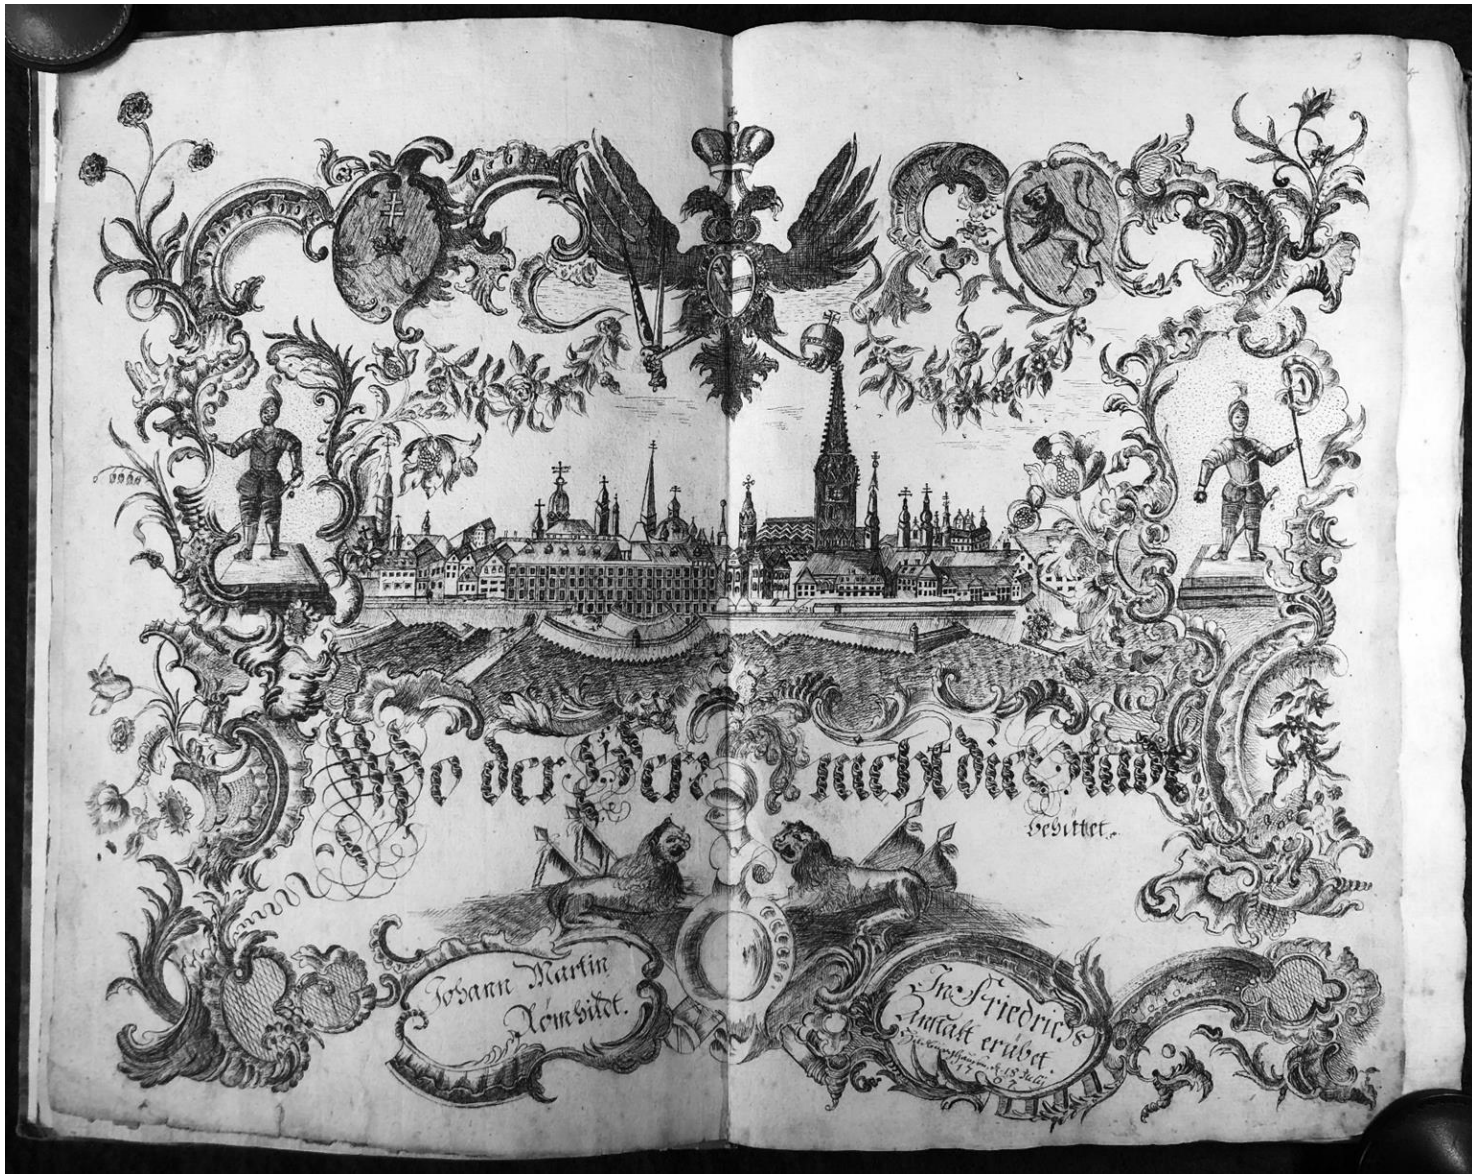 Wo der Herr nicht die Stadt
behüttet.
Johann Martin
Römhildt.
In Friedrichs
Anstalt erübet.
d. 18 Julii
1767